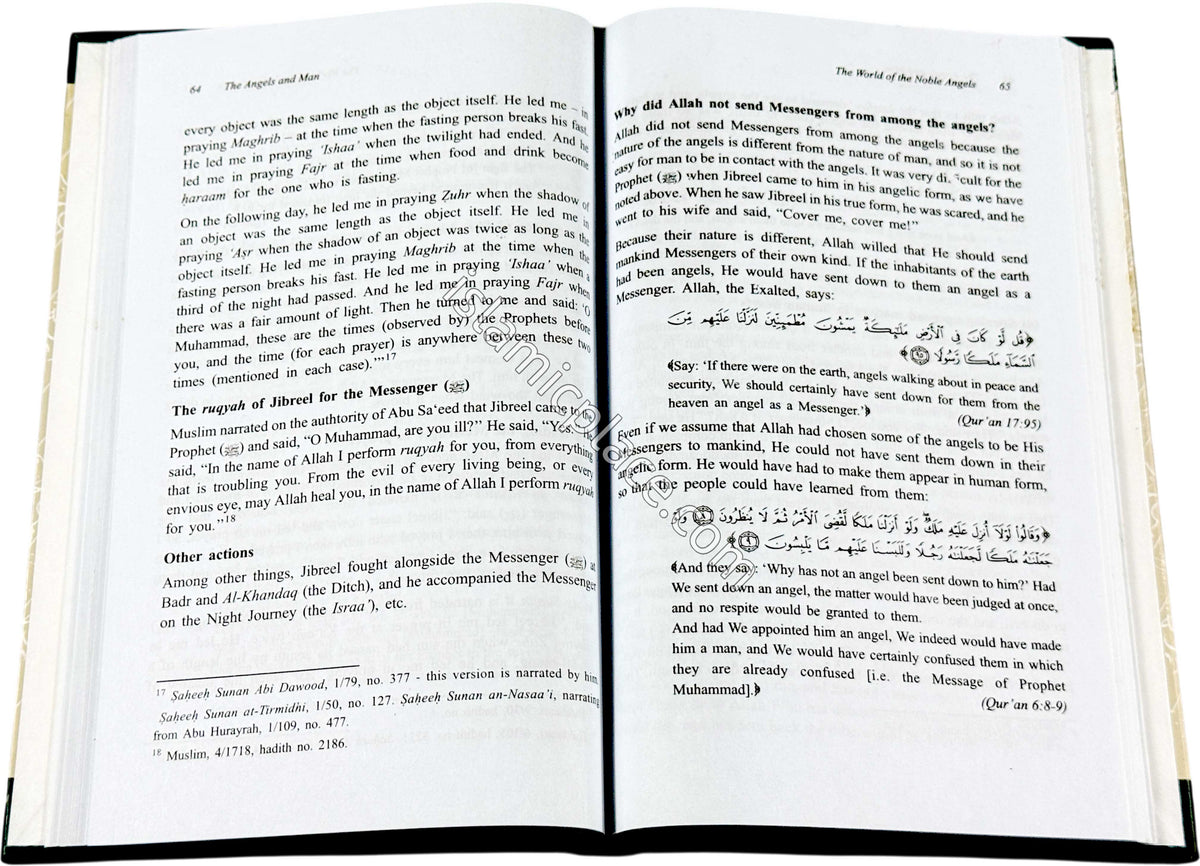 64 The Angels and Man
every object was the same length as the object itself. He led me – in
praying Maghrib – at the time when the fasting person breaks his fast.
He led me in praying ‘Ishaa’ when the twilight had ended. And he
led me in praying Fajr at the time when food and drink become
ḥaraam for the one who is fasting.
On the following day, he led me in praying Ẓuhr when the shadow of
an object was the same length as the object itself. He led me in
praying ‘Aṣr when the shadow of an object was twice as long as the
object itself. He led me in praying Maghrib at the time when the
fasting person breaks his fast. He led me in praying ‘Ishaa’ when a
third of the night had passed. And he led me in praying Fajr when
there was a fair amount of light. Then he turned to me and said: ‘O
Muhammad, these are the times (observed by) the Prophets before
you, and the time (for each prayer) is anywhere between these two
times (mentioned in each case).’”17
The ruqyah of Jibreel for the Messenger (ﷺ)
Muslim narrated on the authtority of Abu Sa‘eed that Jibreel came to the
Prophet (ﷺ) and said, “O Muhammad, are you ill?” He said, “Yes.” He
said, “In the name of Allah I perform ruqyah for you, from everything
that is troubling you. From the evil of every living being, or every
envious eye, may Allah heal you, in the name of Allah I perform ruqyah
for you.”18
Other actions
Among other things, Jibreel fought alongside the Messenger (ﷺ) at
Badr and Al-Khandaq (the Ditch), and he accompanied the Messenger
on the Night Journey (the Israa’), etc.
17 Ṣaḥeeḥ Sunan Abi Dawood, 1/79, no. 377 - this version is narrated by him.
Ṣaḥeeḥ Sunan at-Tirmidhi, 1/50, no. 127. Ṣaḥeeḥ Sunan an-Nasaa’i, narrating
from Abu Hurayrah, 1/109, no. 477.
18 Muslim, 4/1718, hadith no. 2186.
The World of the Noble Angels 65
Why did Allah not send Messengers from among the angels?
Allah did not send Messengers from among the angels because the
nature of the angels is different from the nature of man, and so it is not
easy for man to be in contact with the angels. It was very difficult for the
Prophet (ﷺ) when Jibreel came to him in his angelic form, as we have
noted above. When he saw Jibreel in his true form, he was scared, and he
went to his wife and said, “Cover me, cover me!”
Because their nature is different, Allah willed that He should send
mankind Messengers of their own kind. If the inhabitants of the earth
had been angels, He would have sent down to them an angel as a
Messenger. Allah, the Exalted, says:
﴿قُل لَّوْ كَانَ فِي ٱلْأَرْضِ مَلَٰٓئِكَةٌ يَمْشُونَ مُطْمَئِنِّينَ لَنَزَّلْنَا عَلَيْهِم مِّنَ
ٱلسَّمَآءِ مَلَكًا رَّسُولًا ٩٥﴾
﴾Say: ‘If there were on the earth, angels walking about in peace and
security, We should certainly have sent down for them from the
heaven an angel as a Messenger.’﴿
(Qur’an 17:95)
Even if we assume that Allah had chosen some of the angels to be His
Messengers to mankind, He could not have sent them down in their
angelic form. He would have had to make them appear in human form,
so that the people could have learned from them:
﴿وَقَالُوا۟ لَوْلَآ أُنزِلَ عَلَيْهِ مَلَكٌ وَلَوْ أَنزَلْنَا مَلَكًا لَّقُضِيَ ٱلْأَمْرُ ثُمَّ لَا يُنظَرُونَ ٨ وَلَوْ
جَعَلْنَٰهُ مَلَكًا لَّجَعَلْنَٰهُ رَجُلًا وَلَلَبَسْنَا عَلَيْهِم مَّا يَلْبِسُونَ ٩﴾
﴾And they say: ‘Why has not an angel been sent down to him?’ Had
We sent down an angel, the matter would have been judged at once,
and no respite would be granted to them.
And had We appointed him an angel, We indeed would have made
him a man, and We would have certainly confused them in which
they are already confused [i.e. the Message of Prophet
Muhammad].﴿
(Qur’an 6:8-9)
islamicplace.com